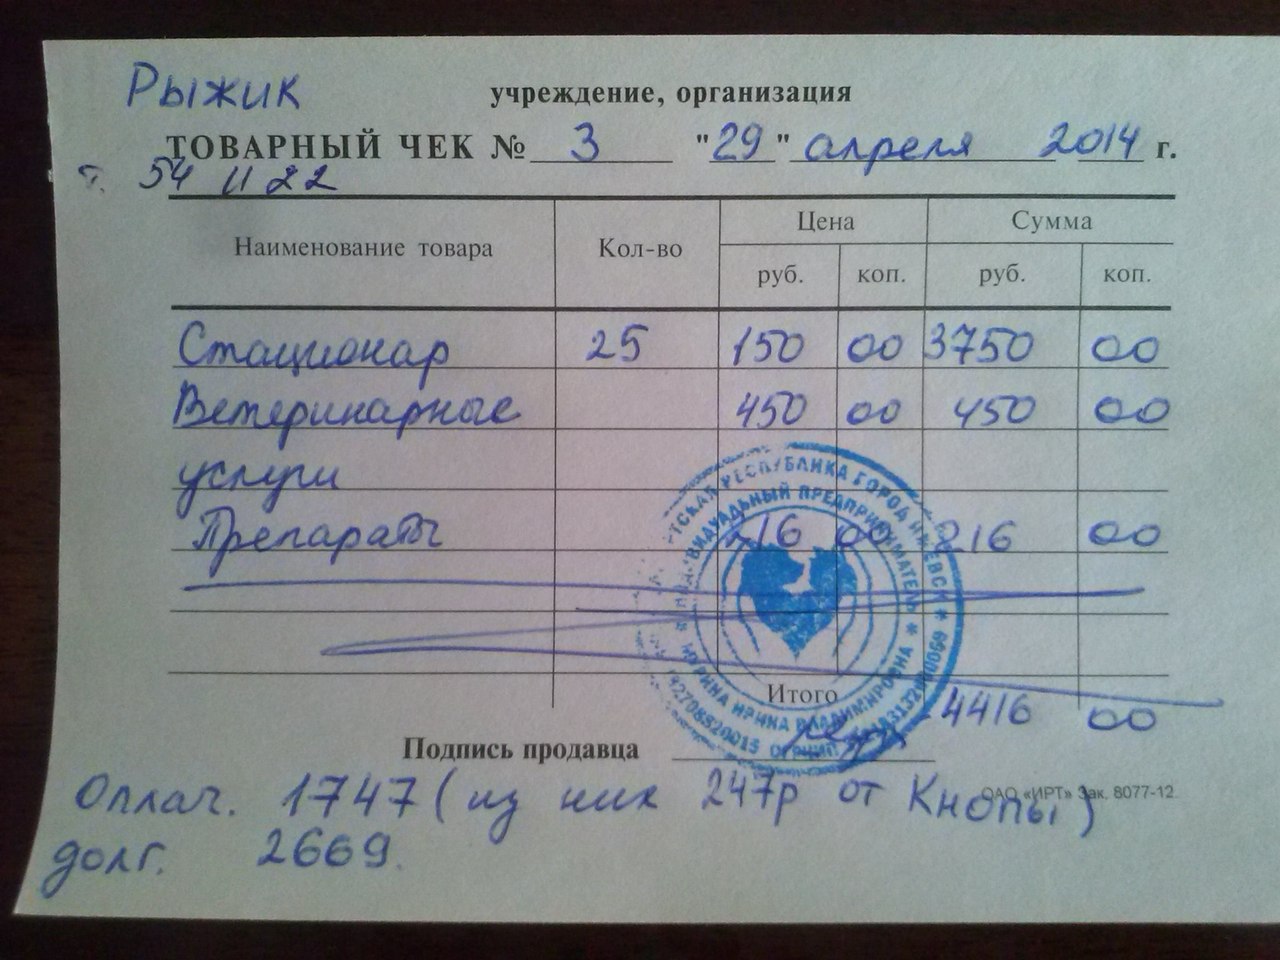 Рыжик
учреждение, организация
ТОВАРНЫЙ ЧЕК № 3 "29" апреля 2014 г.
т. 54 11 22
Наименование товара Кол-во Цена Сумма
руб. коп. руб. коп.
Стационар 25 150 00 3750 00
Ветеринарные 450 00 450 00
услуги
Препараты 216 00 216 00
Итого 4416 00
Подпись продавца
РЕСПУБЛИКА ГОРОД ИЖЕВСК
ИНДИВИДУАЛЬНЫЙ ПРЕДПРИНИМАТЕЛЬ
ИРИНА ВЛАДИМИРОВНА
ОАО «ИРТ» Зак. 8077-12
Оплач. 1747 (из них 247р от Кнопы)
долг. 2669.